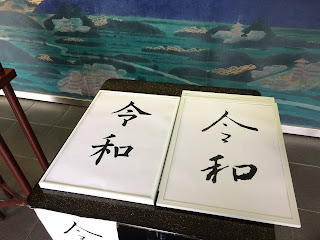 令
和
令
和
令